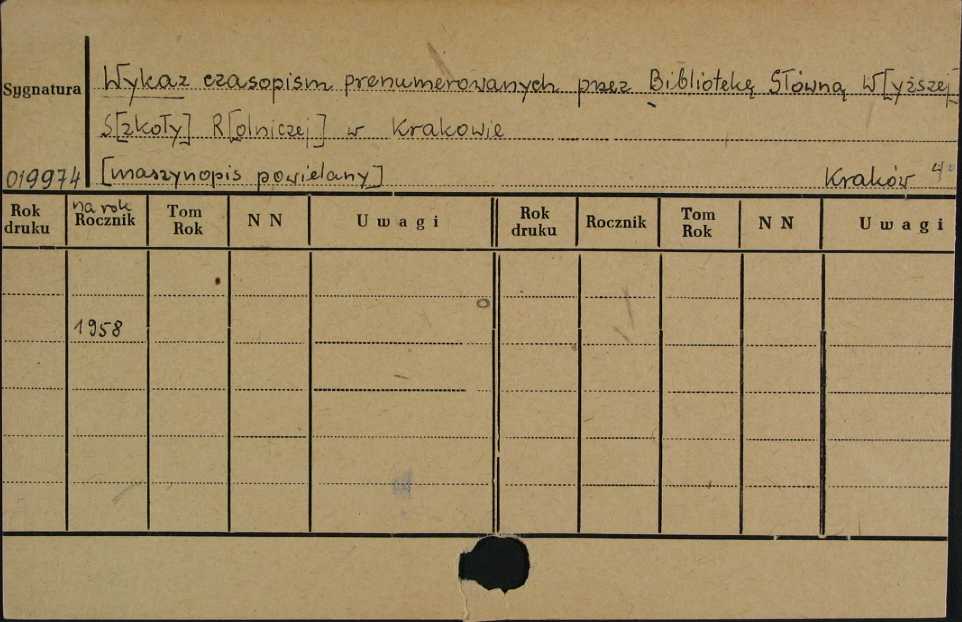 Sygnatura
Wykaz czasopism prenumerowanych przez Bibliotekę Główną W[yższej]
S[zkoły] R[olniczej] w Krakowie
019974 [maszynopis powielany] Kraków 4°
na rok
Rok druku Rocznik Tom Rok N N Uwagi Rok druku Rocznik Tom Rok N N Uwagi
1958